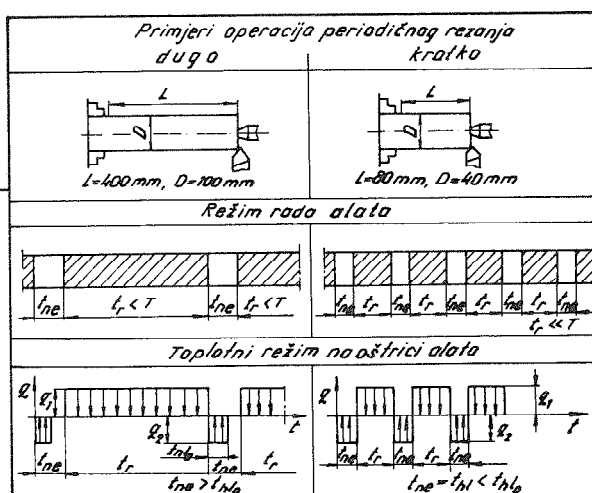 Primjeri operacija periodičnog rezanja
dugo
kratko
L
D
L=400mm, D=100mm
L
D
L=80mm, D=40mm
Režim rada alata
tne tr < T tne tr < T
tne tr tne tr tne tr tne tr tne
tr << T
Toplotni režim na oštrici alata
Q q1 q2 t
thlo
tne tr tne tr
tne > thlo
Q q1 q2 t
tne tr tne tr tne
tne = thl < thlo